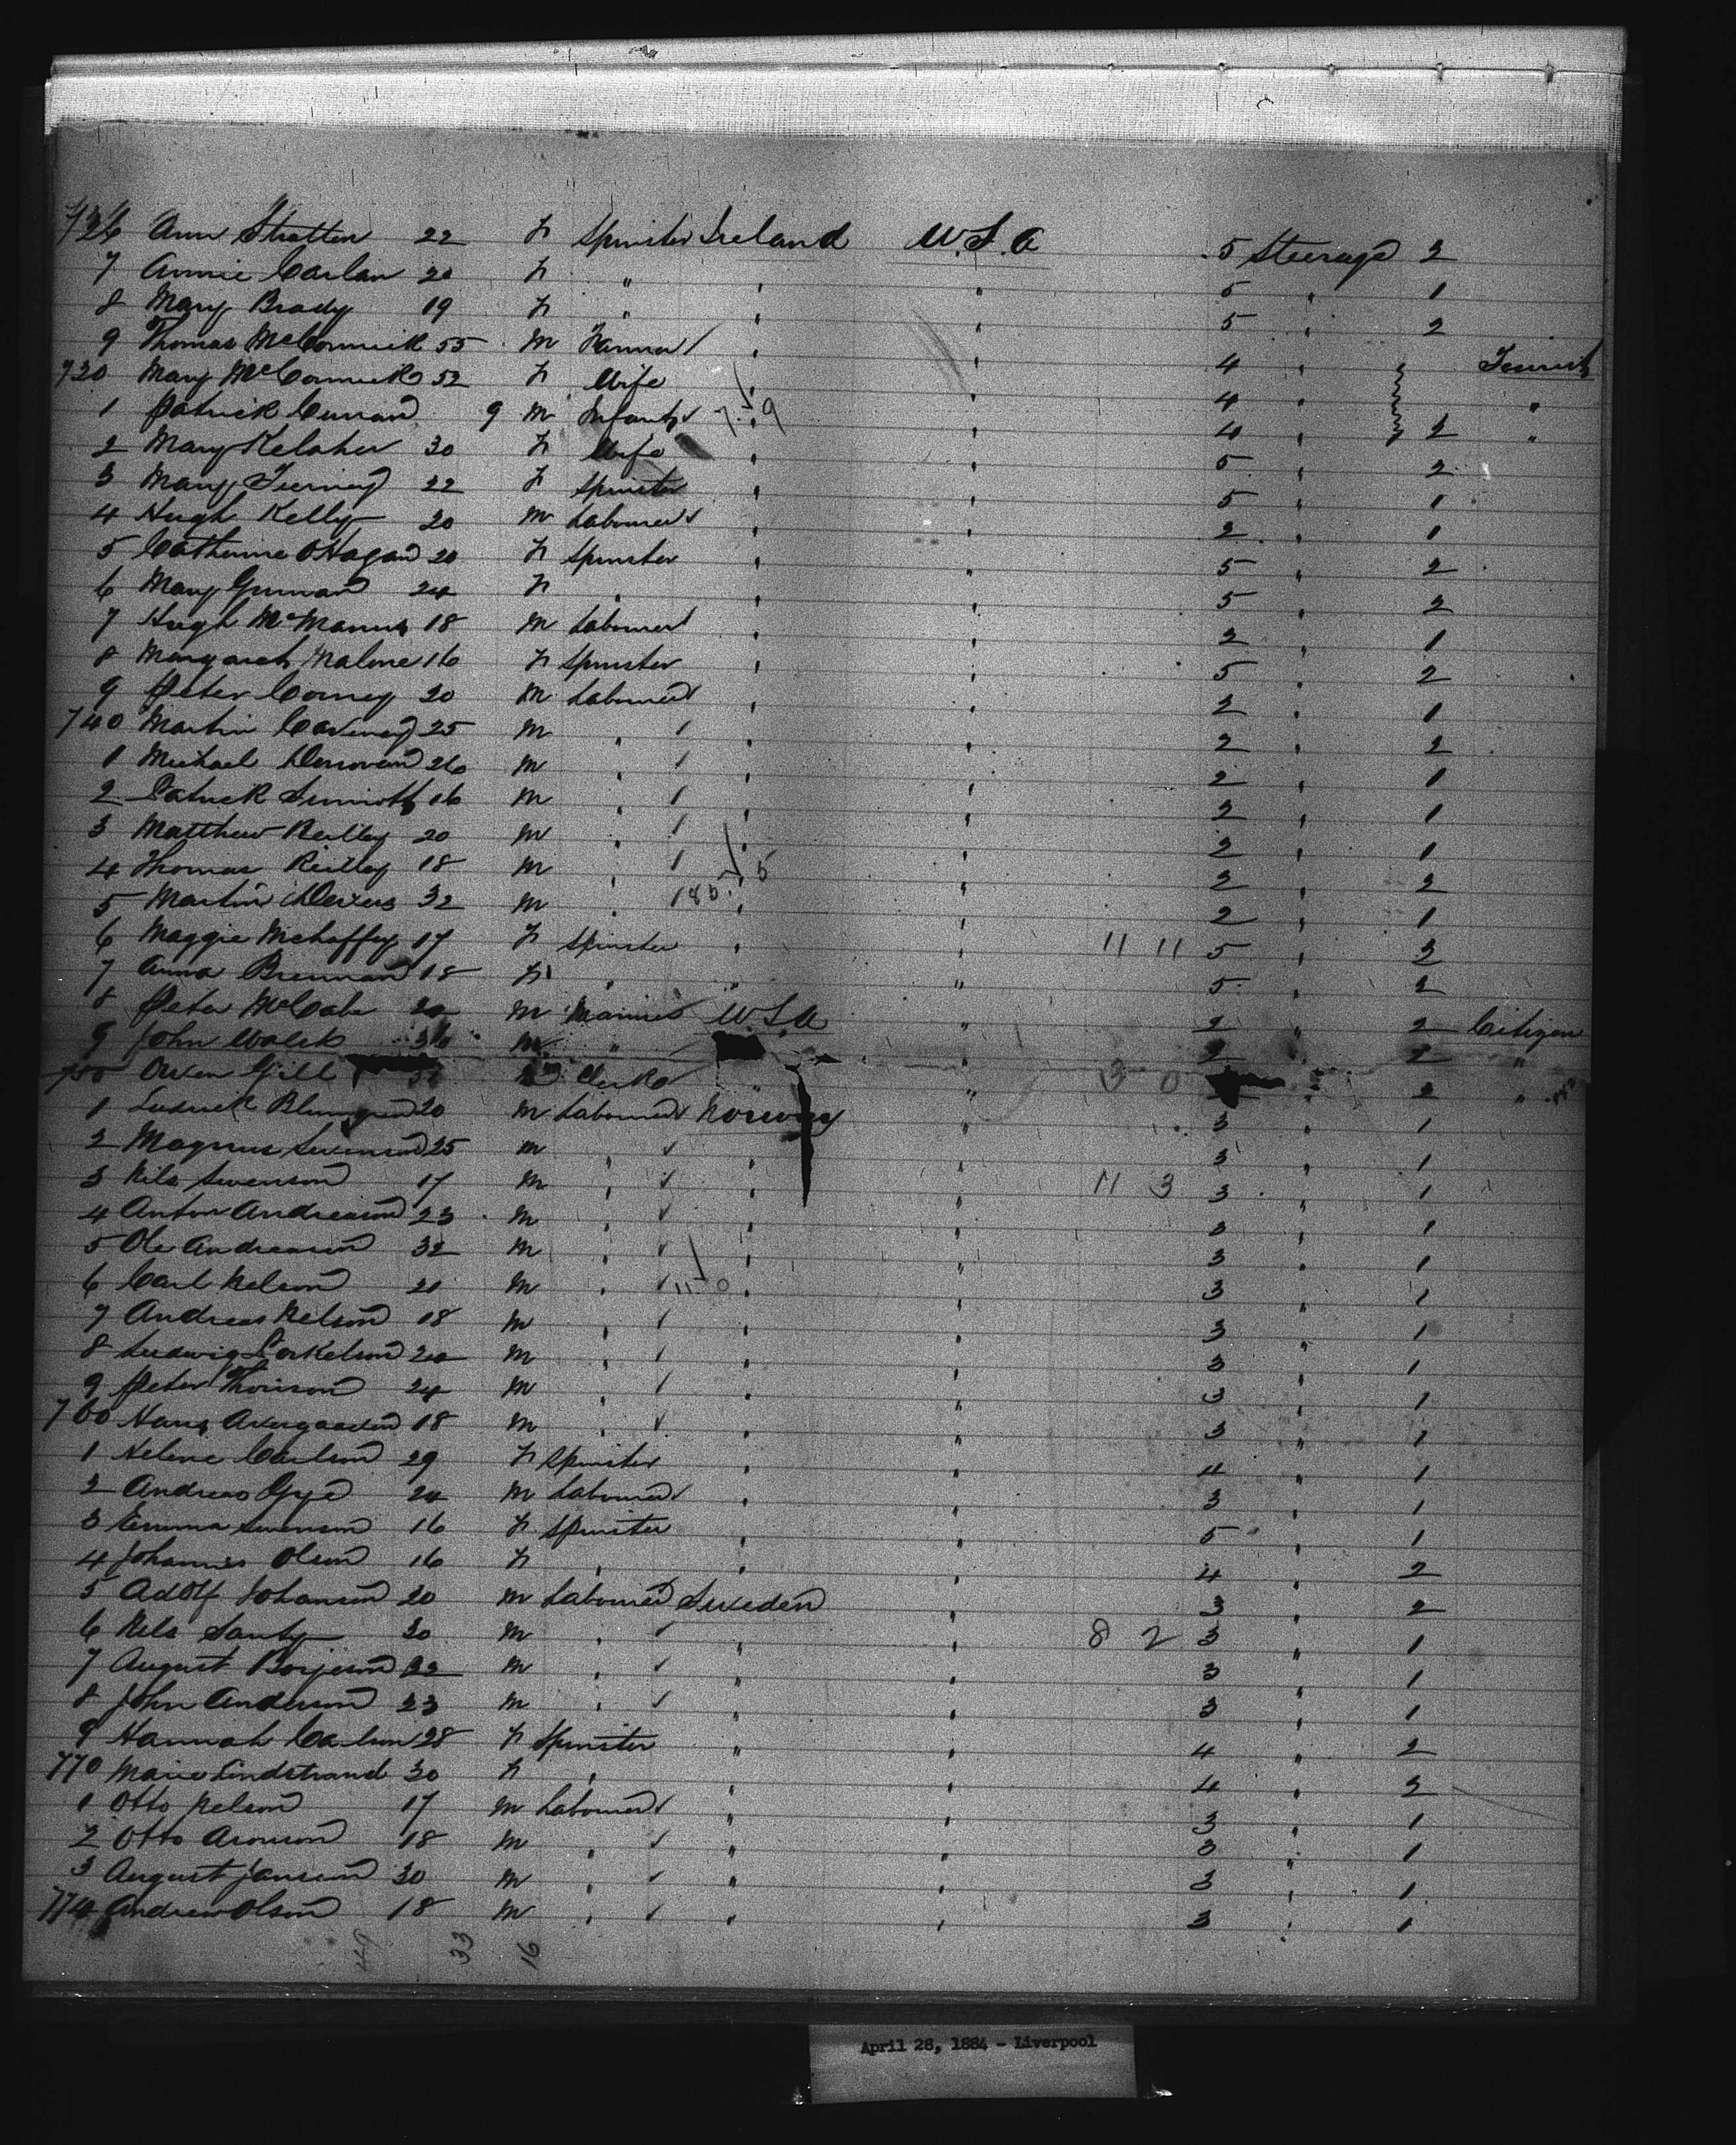 726 Ann Stratten 22 F Spinster Ireland U.S.A 5 Steerage 2
7 Annie Carlan 20 F " " " 5 " 1
8 Mary Brady 19 F " " " 5 " 2
9 Thomas McCormick 55 M Farmer " " 4 " Tourist
730 Mary McCormick 52 F Wife " " 4 " "
1 Patrick Curran 9 M Infant " " 4 " 2 "
2 Mary Kelaher 30 F Wife " " 5 " 2
3 Mary Tierney 22 F Spinster " " 5 " 1
4 Hugh Kelly 20 M Labourer " " 2 " 1
5 Catherine O'Hagan 20 F Spinster " " 5 " 2
6 Mary 24 F " " " 5 " 2
7 Hugh McManus 18 M Labourer " " 2 " 1
8 Margaret Malone 16 F Spinster " " 5 " 2
9 Peter Corney 20 M Labourer " " 2 " 1
740 Martin 25 M " " " 2 " 2
1 Michael Donovan 26 M " " " 2 " 1
2 Patrick Sinnott 16 M " " " 2 " 1
3 Matthew Reilley 20 M " " " 2 " 1
4 Thomas Reilley 18 M " " " 2 " 2
5 Martin 32 M " " " 2 " 1
6 Maggie Mehaffey 17 F Spinster " " 11 11 5 " 2
7 Anna Brennan 18 F " " " 5 " 2
8 Peter McCabe M Mariner U.S.A " 2 " 2 Citizen
9 John 36 M " " 2 2 "
750 Owen Gill M Clerk " " 3 0 " 2 "
1 20 M Labourer Norway " 3 " 1
2 Magnus Swenson 25 M " " " 3 " 1
3 Nils Swenson 17 M " " " 11 3 3 " 1
4 Anton Andreason 23 M " " " 3 " 1
5 Ole Andreason 32 M " " " 3 " 1
6 Carl Nelson 21 M " " " 3 " 1
7 Andreas Nelson 18 M " " " 3 " 1
8 Ludwig Torkelson M " " " 3 " 1
9 Peter Thorison 24 M " " " 3 " 1
760 Hans 18 M " " " 3 " 1
1 Helene Carlson 29 F Spinster " " 4 " 1
2 Andreas Gye 24 M Labourer " " 3 " 1
3 Emma Swenson 16 F Spinster " " 5 " 1
4 Johannes Olson 16 F " " " 4 " 2
5 Adolf Johanson 20 M Labourer Sweden " 3 " 2
6 Nels 30 M " " " 8 2 3 " 1
7 August Borjeson 22 M " " " 3 " 1
8 John Anderson 23 M " " " 3 " 1
9 Hannah Carlson 28 F Spinster " " 4 " 2
770 Marie Lindstrand 30 F " " " 4 " 2
1 Otto Nelson 17 M Labourer " " 3 " 1
2 Otto Aronson 18 M " " " 3 " 1
3 August Janson 30 M " " " 3 " 1
774 Andrew Olson 18 M " " " 3 " 1
49 33 16
April 28, 1884 - Liverpool